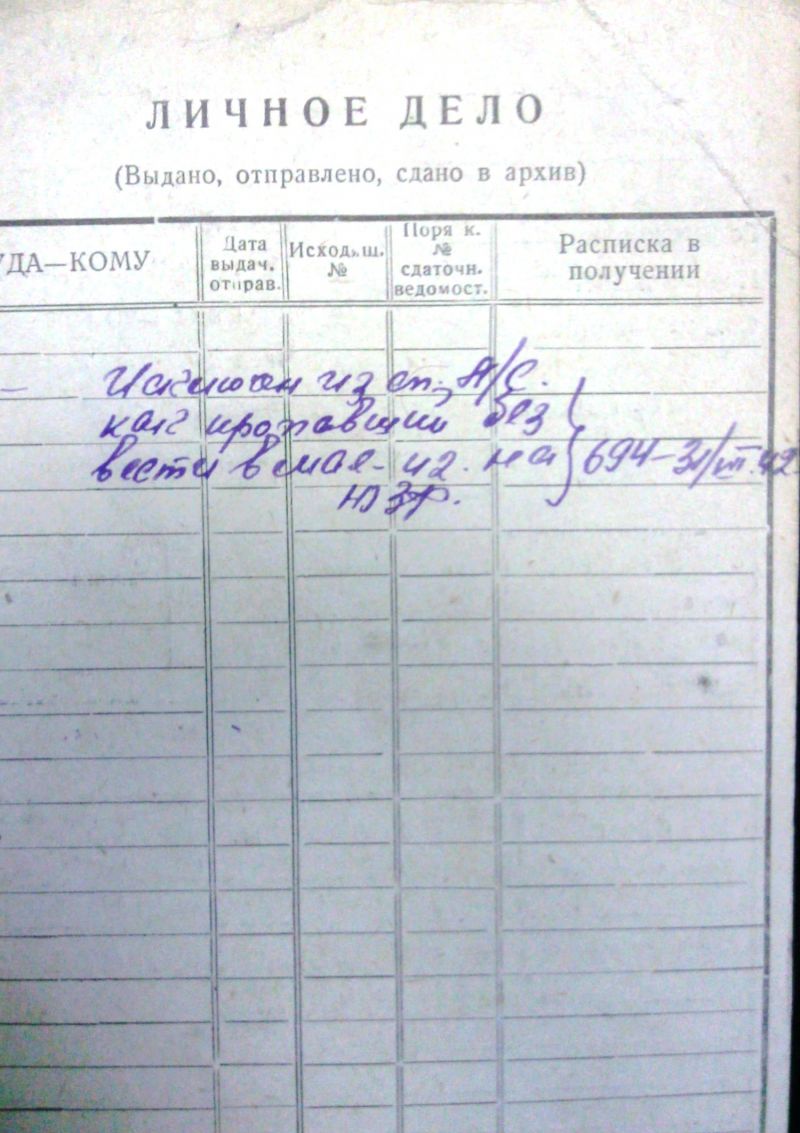 ЛИЧНОЕ ДЕЛО
(Выдано, отправлено, сдано в архив)
УДА—КОМУ
Дата
выдач.
отправ.
Исходящ.
№
Поряд к.
№
сдаточн.
ведомост.
Расписка в
получении
— Исключен из сп. Н/С.
как пропавший без
вести в мае - 42. на
ЮЗФ.
694-